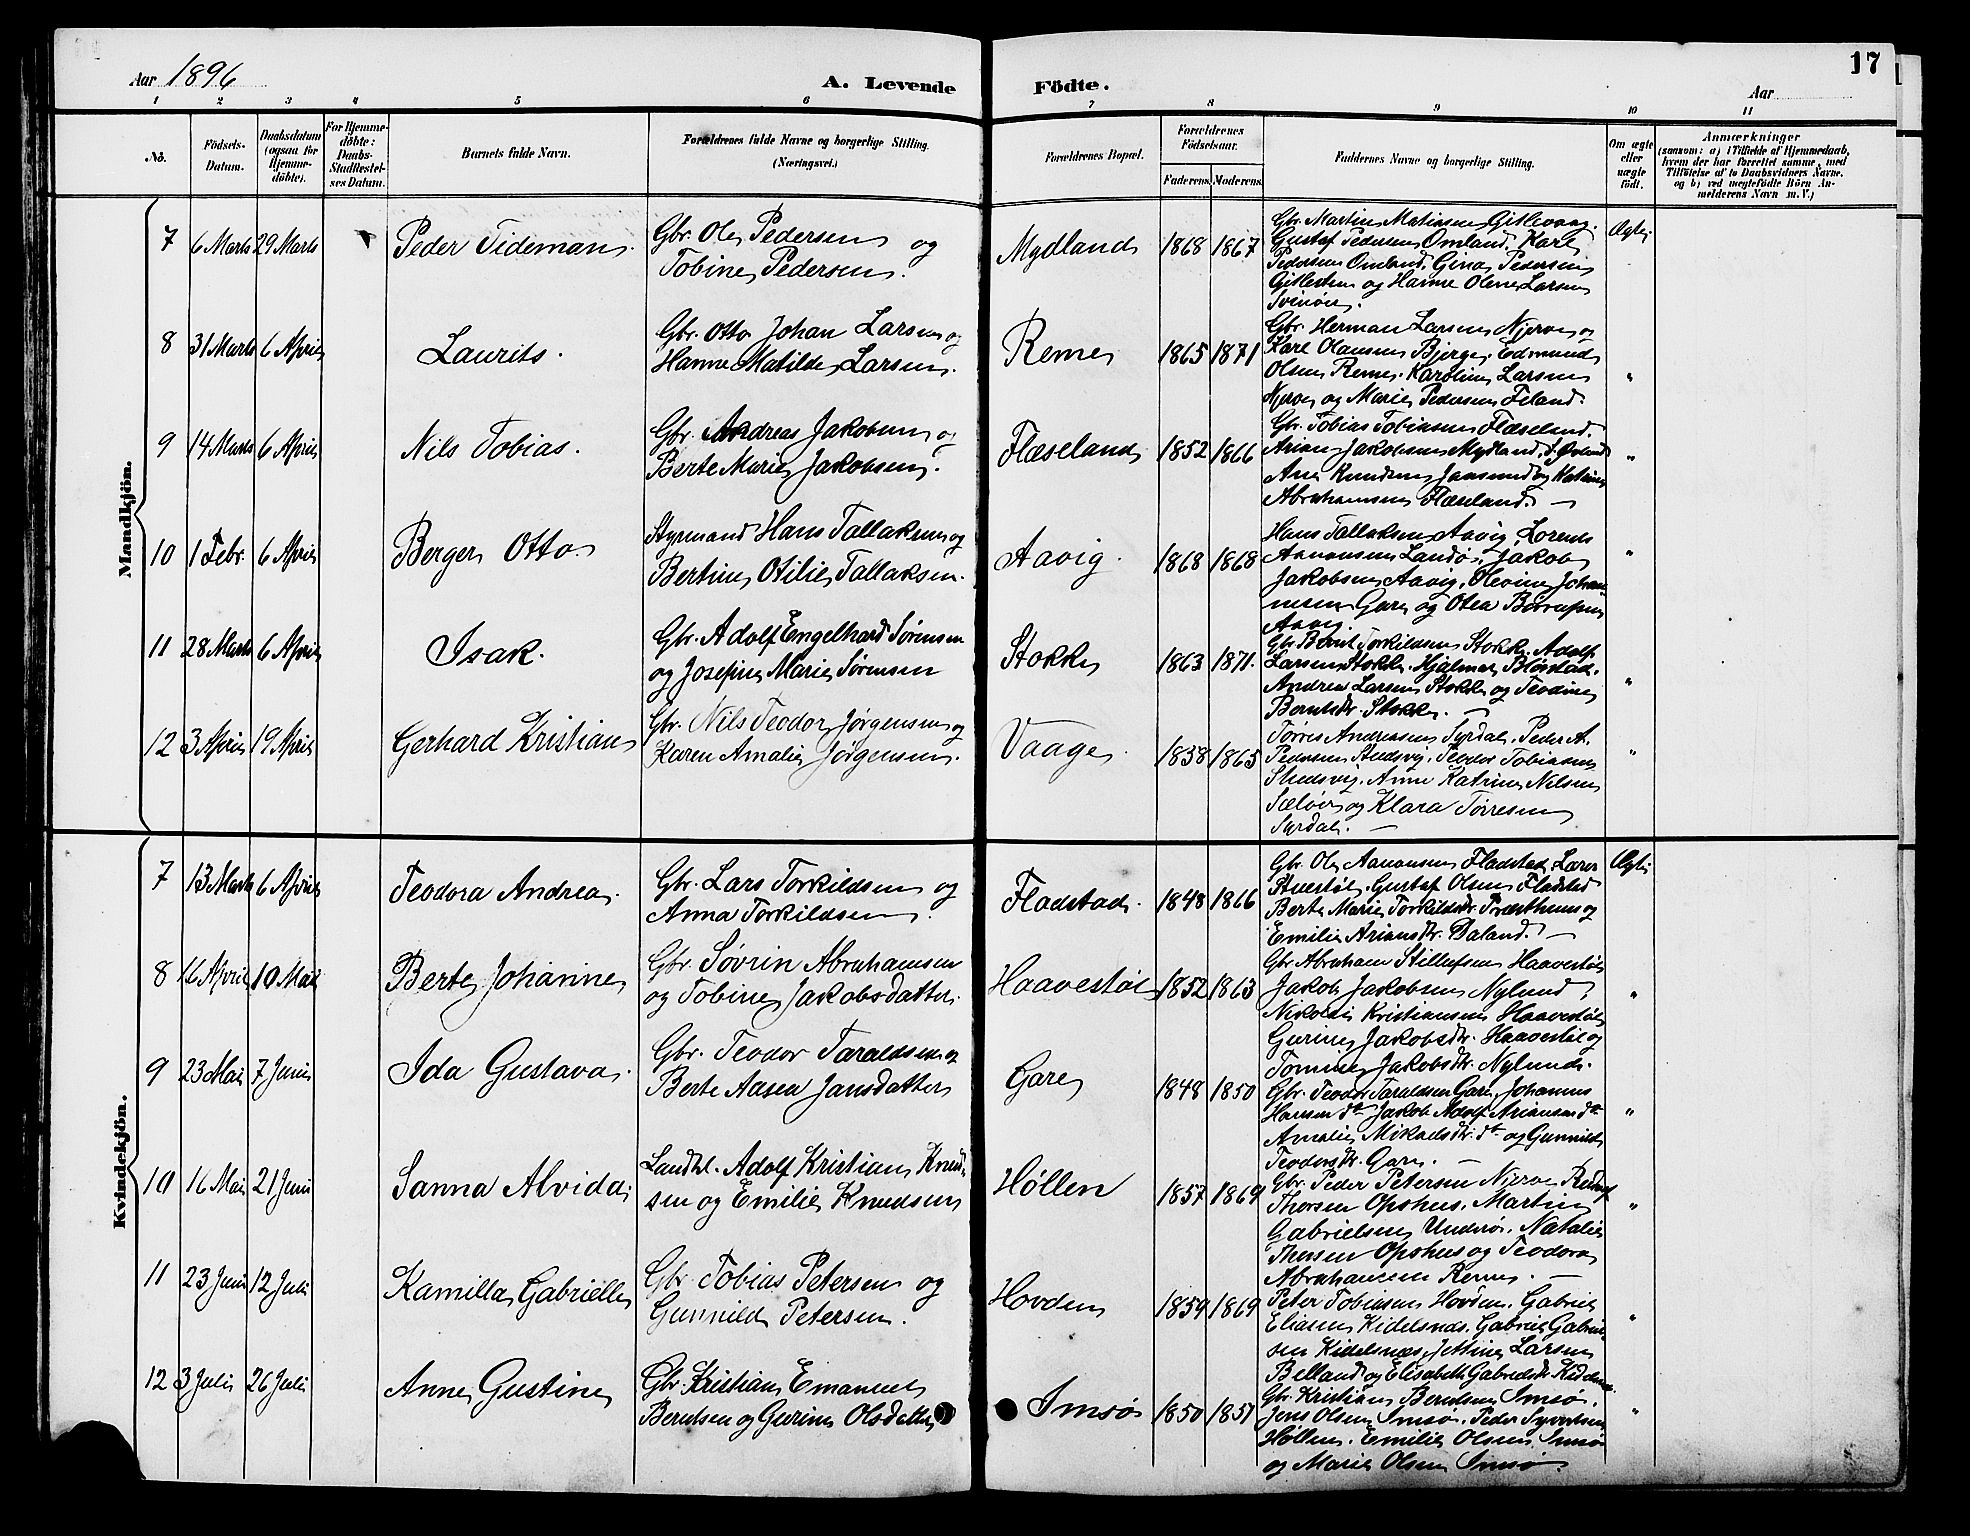 Aar 1896
A. Levende Födte.
17
Aar
1 2 3 4 5 6 7 8 9 10 11
No.
Födsels-Datum.
Daabsdatum (ogsaa for Hjemme-döbte).
For Hjemme-döbte: Daabs-Stadfæstel-ses Datum.
Barnets fulde Navn.
Forældrenes fulde Navne og borgerlige Stilling. (Næringsvei.)
Forældrenes Bopæl.
Forældrenes Födselsaar.
Faderens. Moderens.
Faddernes Navne og borgerlige Stilling.
Om ægte eller uægte födt.
Anmærkninger
(saasom: a) i Tilfælde af Hjemmedaab, hvem der har forrettet samme, med Tilföielse af to Daabsvidners Navne. og b) ved uegtefödte Börn An-melderens Navn m. V.)
Mandkjön.
7 6 Marts 29 Marts Peder Tideman. Gbr. Ole Pedersen og
Tobine Pedersen. Mydland 1868 1867 Gbr. Martin Matiasen Gitlevaag.
Gustaf Pedersen Omland. Karl
Pedersen Omland. Gina Pedersen
Gitlesten og Hanne Olene Larsen
Svinøre. Ægte
8 31 Marts 6 April Laurits. Gbr. Otto Johan Larsen og
Hanne Matilde Larsen. Reme 1865 1871 Gbr. Herman Larsen Njerve og
Karl Olausen Bjerge. Edmund
Olsen Reme. Karoline Larsen
Njerve og Marie Pedersen Feland. "
9 14 Marts 6 April Nils Tobias. Gbr. Andreas Jakobsen og
Berte Marie Jakobsen. Flæseland 1852 1866 Gbr. Tobias Tobiassen Flæseland.
Arian Jakobsen Mydland,
Ane Knudsen Jaasund og Katrine
Abrahamsen Flæseland. "
10 1 Febr. 6 April Berger Otto Styrmand Hans Tallaksen og
Bertine Otilie Tallaksen. Aavig. 1868 1868 Hans Tallaksen Aavig, Lorents
Aanonsen Landø, Jakob
Jakobsen Aavig, Olevine Johan-
nesen Gare og Otea Børrufsen
Aavig. "
11 28 Marts 6 April Isak. Gbr. Adolf Engelhard Sørensen
og Josefine Marie Sørensen Stokke 1863 1871. Gbr. Bernt Torkildsen Stokke. Adolf
Larsen Stokke. Hjalmar Bløstad.
Andrea Larsen Stokke og Teodine
Berntsdr. Stokke. "
12 3 April 19 April Gerhard Kristian Gbr. Nils Teodor Jørgensen og
Karen Amalie Jørgensen. Vaage. 1858 1865 Tørris Andreasen Syrdal. Peder A.
Pedersen Stedsvig. Teodor Tobiassen
Stedsvig. Anne Katrine Nilsen
Sæløer og Klara Tørresen
Syrdal. "
Kvindekjön.
7 13 Marts 6 April Teodora Andrea. Gbr. Lars Torkildsen og
Anna Torkildsen. Fladstad. 1848 1866 Gbr. Ole Aanonsen Fladstad, Lærer
Stuestøl. Gustaf Olsen Fladstad
Berte Marie Torkildsdr. Presthuus og
Emilie Ariansdr. Daland. Ægte
8 16 April 10 Mai Berte Johanne Gbr. Søvrin Abrahamsen
og Tobine Jakobsdatter. Haavestøl 1852 1863 Gbr. Abraham Stillufsen Haavestøl
Jakob Jakobsen Nylund,
Nikolai Kristiansen Haavestøl
Gurine Jakobsdr. Haavestøl og
Tomine Jakobsdr. Nylund. "
9 23 Mai 7 Juni Ida Gustava. Gbr. Teodor Taraldsen og
Berte Aasea Jansdatter Gare 1848 1850 Gbr. Teodor Taraldsen Gare, Johannes
Hansen do Jakob Adolf Ariansen do
Amalie Mikaelsdr. do og Gunnild
Teodorsdr. Gare. "
10 16 Mai 21 Juni Sanna Alvida Landhl. Adolf Kristian Knud-
sen og Emilie Knudsen Høllen 1857 1869 Gbr. Peder Petersen Njerve Rudolf
Thorsen Opshus. Martin
Gabrielsen Underø. Natalie
Thorsen Opshus og Teodora
Abrahamsen Reme. "
11 23 Juni 12 Juli Kamilla Gabrielle Gbr. Tobias Petersen og
Gunnild Petersen. Hovden 1859 1869 Peter Tobiassen Hovden. Gabriel
Eliasen Kidelsnæs. Gabriel Gabriel-
sen Kidelsnæs, Jettine Larsen
Belland og Elisabeth Gabrielsdr. "
12 3 Juli 26 Juli Anne Gustine Gbr. Kristian Emanuel
Berntsen og Gurine Olsdatter Imsø 1850 1857 Gbr. Kristian Berntsen Imsø.
Jens Olsen Imsø. Peder Syvertsen
Høllen. Emilie Olsen Imsø
og Marie Olsen Imsø. "